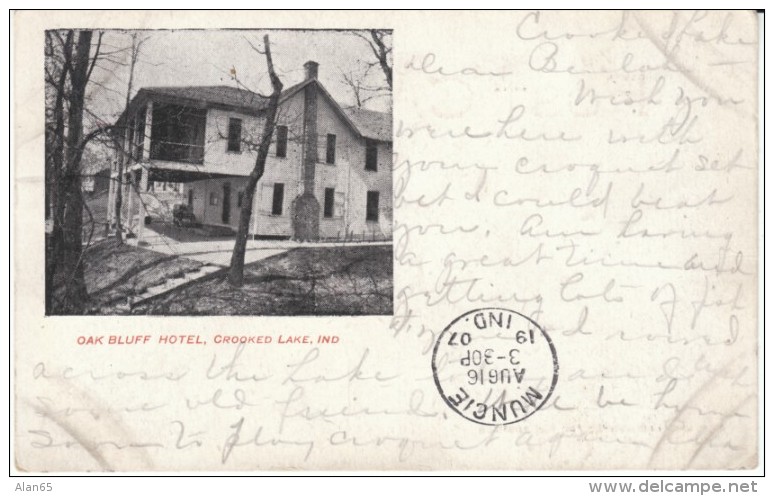 Crooked Lake
Dear Beulah
Wish you
were here with
your croquet set
bet I could beat
you. Am having
a great time and
getting lots of fish
I rowed
OAK BLUFF HOTEL, CROOKED LAKE, IND
across the Lake and
some old friend. Will be home
soon to play croquet again
MUNCIE
AUG16
3-30P
19 07
IND.
Alan65
www.delcampe.net